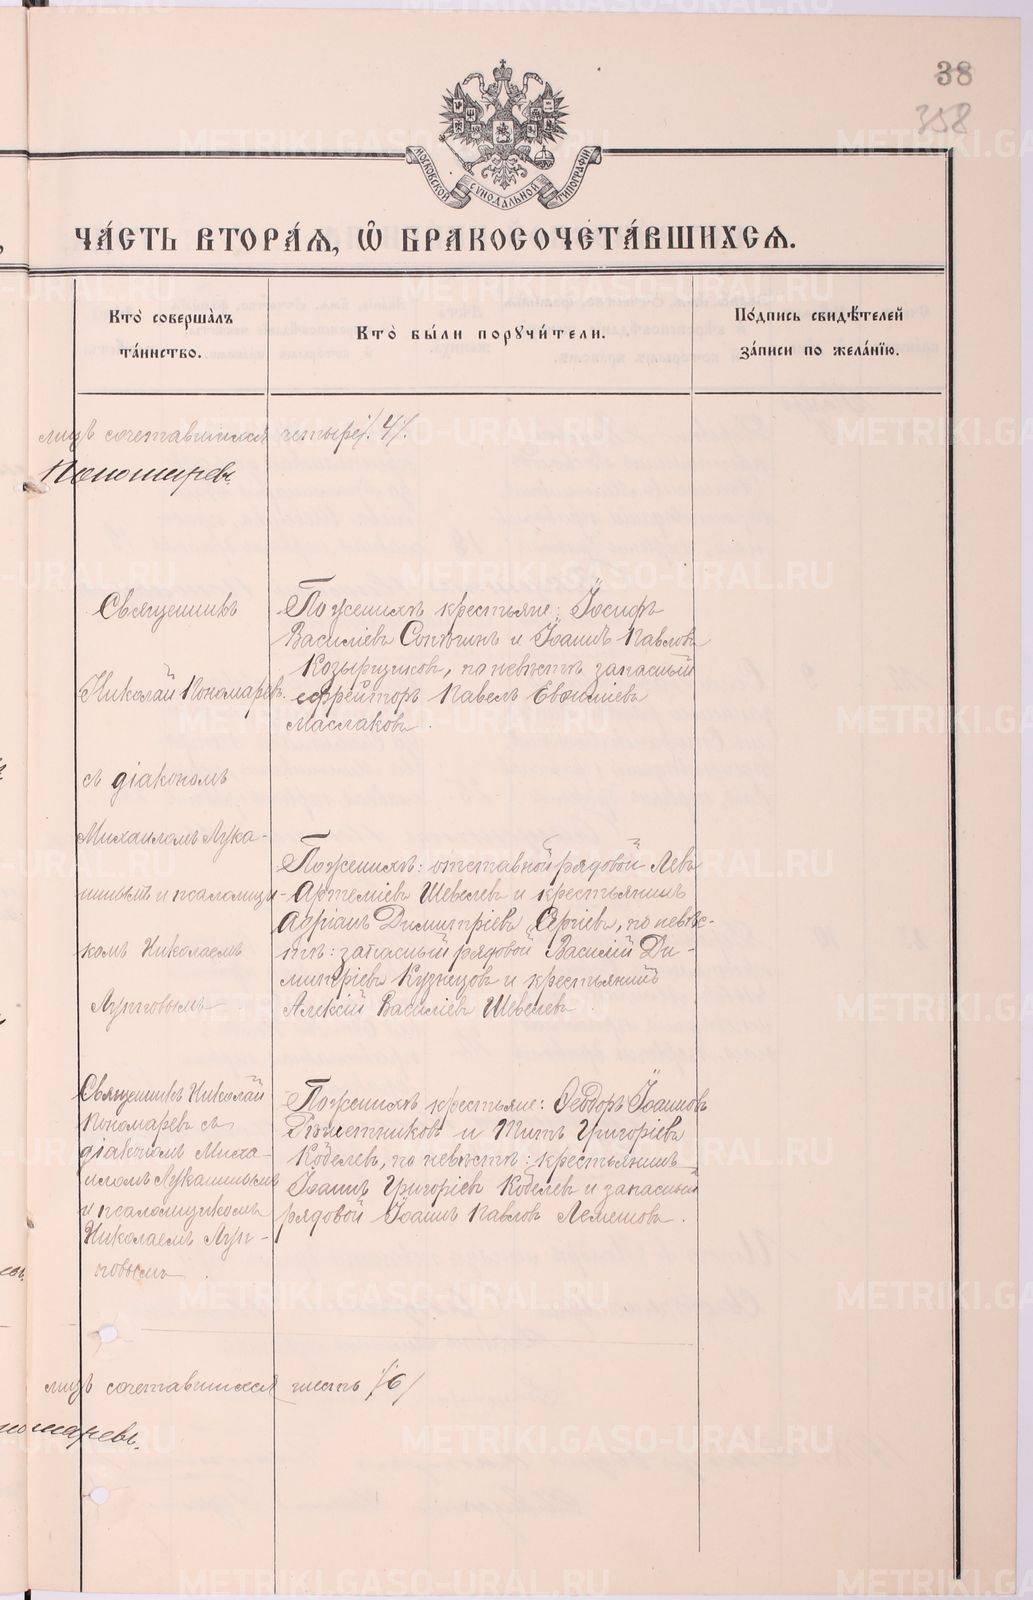 38
358
МОСКОВСКОЙ СѴНОДАЛЬНОЙ ТИПОГРАФІИ
ЧА́СТЬ ВТОРА́Ѧ, Ѽ БРАКОСОЧЕТА́ВШИХСѦ.
Кто̀ соверша́лъ
та́инство.
Кто̀ бы́ли порꙋчи́тели.
По́дпись свидѣ́телей
за́писи по жела́нїю.
лицъ сочетавшихся четыре /4/.
Пономаревъ.
Священникъ
Николай Пономаревъ
съ діакономъ
Михаиломъ Лука-
шинымъ и псаломщи-
комъ Николаемъ
По женихѣ крестьяне: Іосифъ
Василіевъ и Іоаннъ Павловъ
Козырщиковъ, по невѣстѣ запасный
ефрейторъ Павелъ
Маслаковъ.
По женихѣ: отставной рядовой Левъ
Артеміевъ Шевелевъ и крестьянинъ
Адріанъ Димитріевъ по невѣс-
тѣ: запасный рядовой Василій Ди-
митріевъ Кузнецовъ и крестьянинъ
Алексій Василіевъ Шевелевъ.
Священникъ Николай
Пономаревъ съ
діакономъ Миха-
иломъ Лукашинымъ
и псаломщикомъ
Николаемъ
По женихѣ крестьяне: Ѳеодоръ Іоанновъ
и Титъ Григоріевъ
Кобелевъ, по невѣстѣ: крестьянинъ
Іоаннъ Григоріевъ Кобелевъ и запасный
рядовой Іоаннъ Павловъ Лемешовъ.
лицъ сочетавшихся шесть /6/
номаревъ.